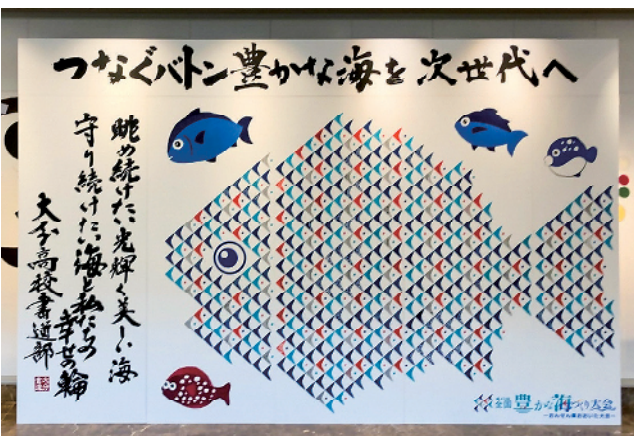 つなぐバトン豊かな海を次世代へ
眺め続けたい光輝く美しい海
守り続けたい海と私たちの
幸せの輪
大分高校書道部
全国豊かな海づくり大会
～おんせん県おおいた大会～